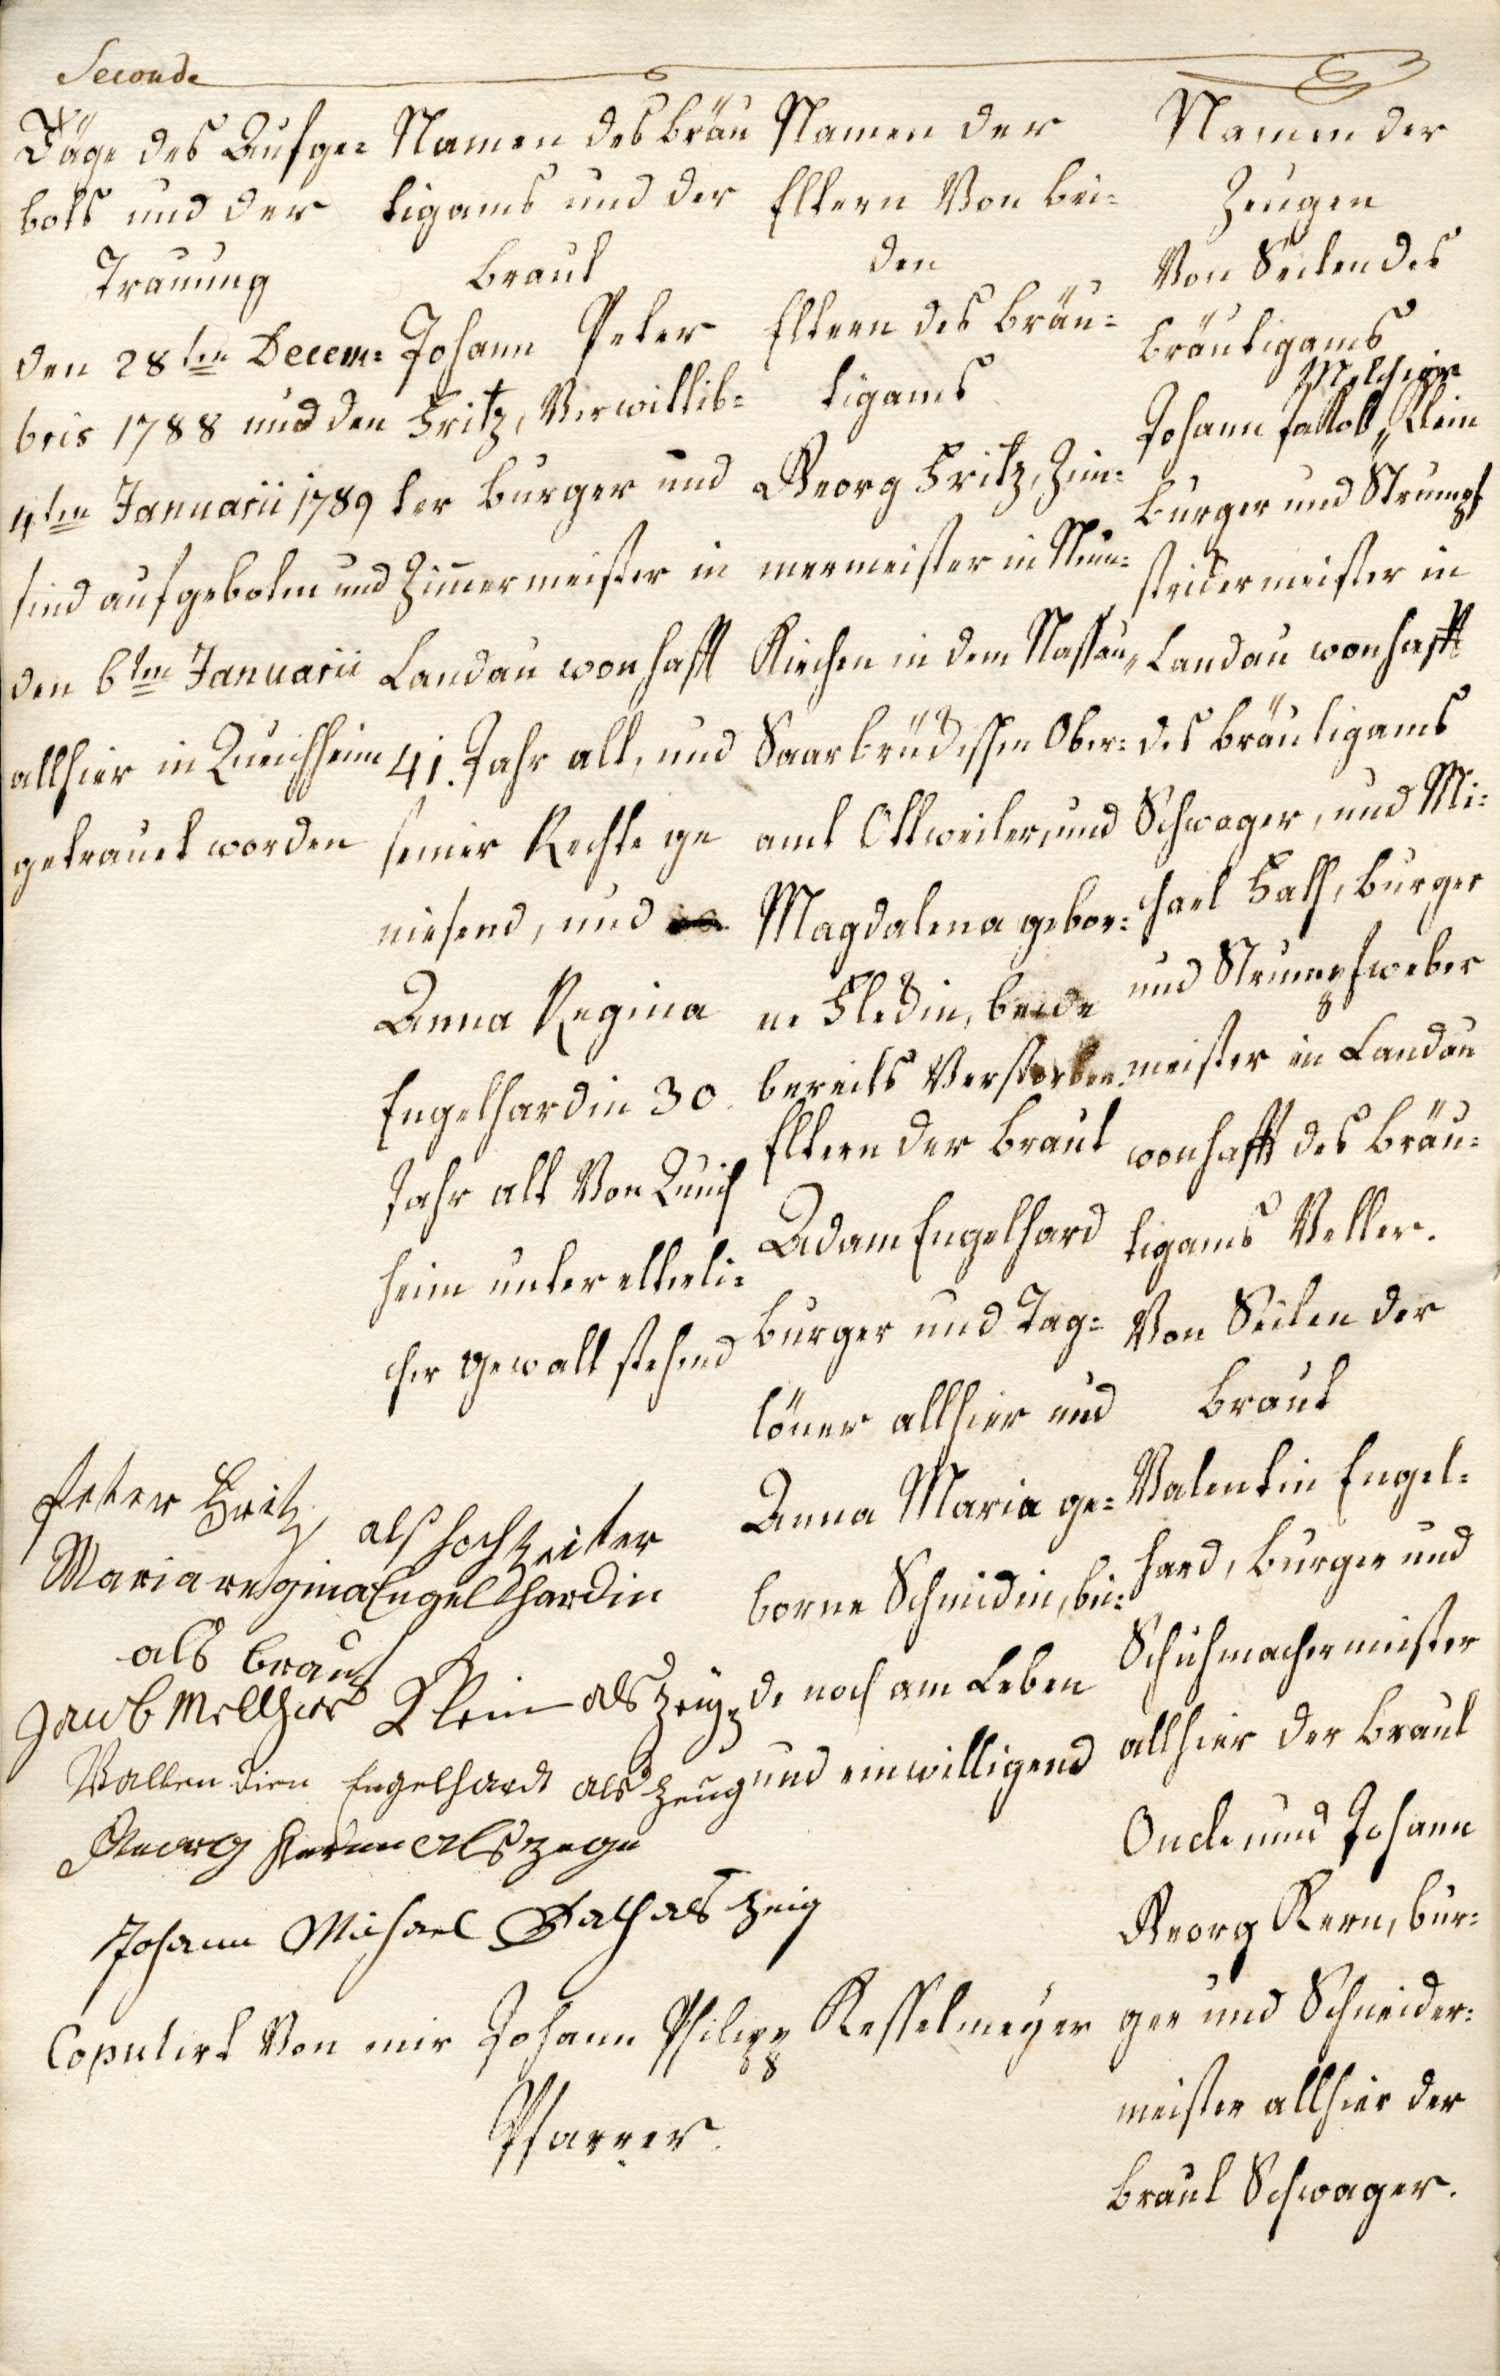 Seconde
Täge des Aufge=
bots und der
Trauung
den 28ten Decem=
bris 1788 und den
4ten Januarii 1789
sind aufgeboten und
den 6ten Januarii
allhier in Queichheim
getrauet worden
Namen des Bräu
tigams und der
Braut
Johann Peter
Fritz, Verwittib=
ter Burger und
Zimmermeister in
Landau wonhafft
41. Jahr alt, und
seiner Rechte ge
niesend, und
Anna Regina
Engelhardin 30
Jahr alt Von Queich
heim unter elterli=
cher gewalt stehend
Namen der
Eltern Von bei=
den
Eltern des Bräu=
tigams
Georg Fritz, Zim=
mermeister in Neun=
Kirchen in dem Nassau„
Saarbrückischen Ober=
amt Ottweiler, und
Magdalena gebor=
ne Fleckin, beide
bereits Verstorben.
Eltern der Braut
Adam Engelhard
Burger und Tag=
löner allhier und
Anna Maria ge=
borne Schmidin, bei=
de noch am Leben
und einwilligend
Namen der
Zeugen
Von Seiten des
Bräutigams
Melchior
Johann Jakob „ Klein
Burger und Strumpf
strickermeister in
Landau wonhafft
des Bräutigams
Schwager, und Mi=
chael Fath, Burger
und Strumpfweber
meister in Landau
wonhafft des Bräu=
tigams Vetter.
Von Seiten der
Braut
Valentin Engel=
hard, Burger und
Schuhmachermeister
allhier der Braut
Oncle und Johann
Georg Kern, Bur=
ger und Schneider=
meister allhier der
Braut Schwager.
Peter Fritz als hochzeiter
Maria regina Engelhardin
als braut
Jacob Melchior Klein als zeig
Vallendien Engelhardt als zeug
Georg Kern als zege
Johann Michael Fath als zeig
Copulirt Von mir Johann Philipp Kesselmeyer
Pfarrer.